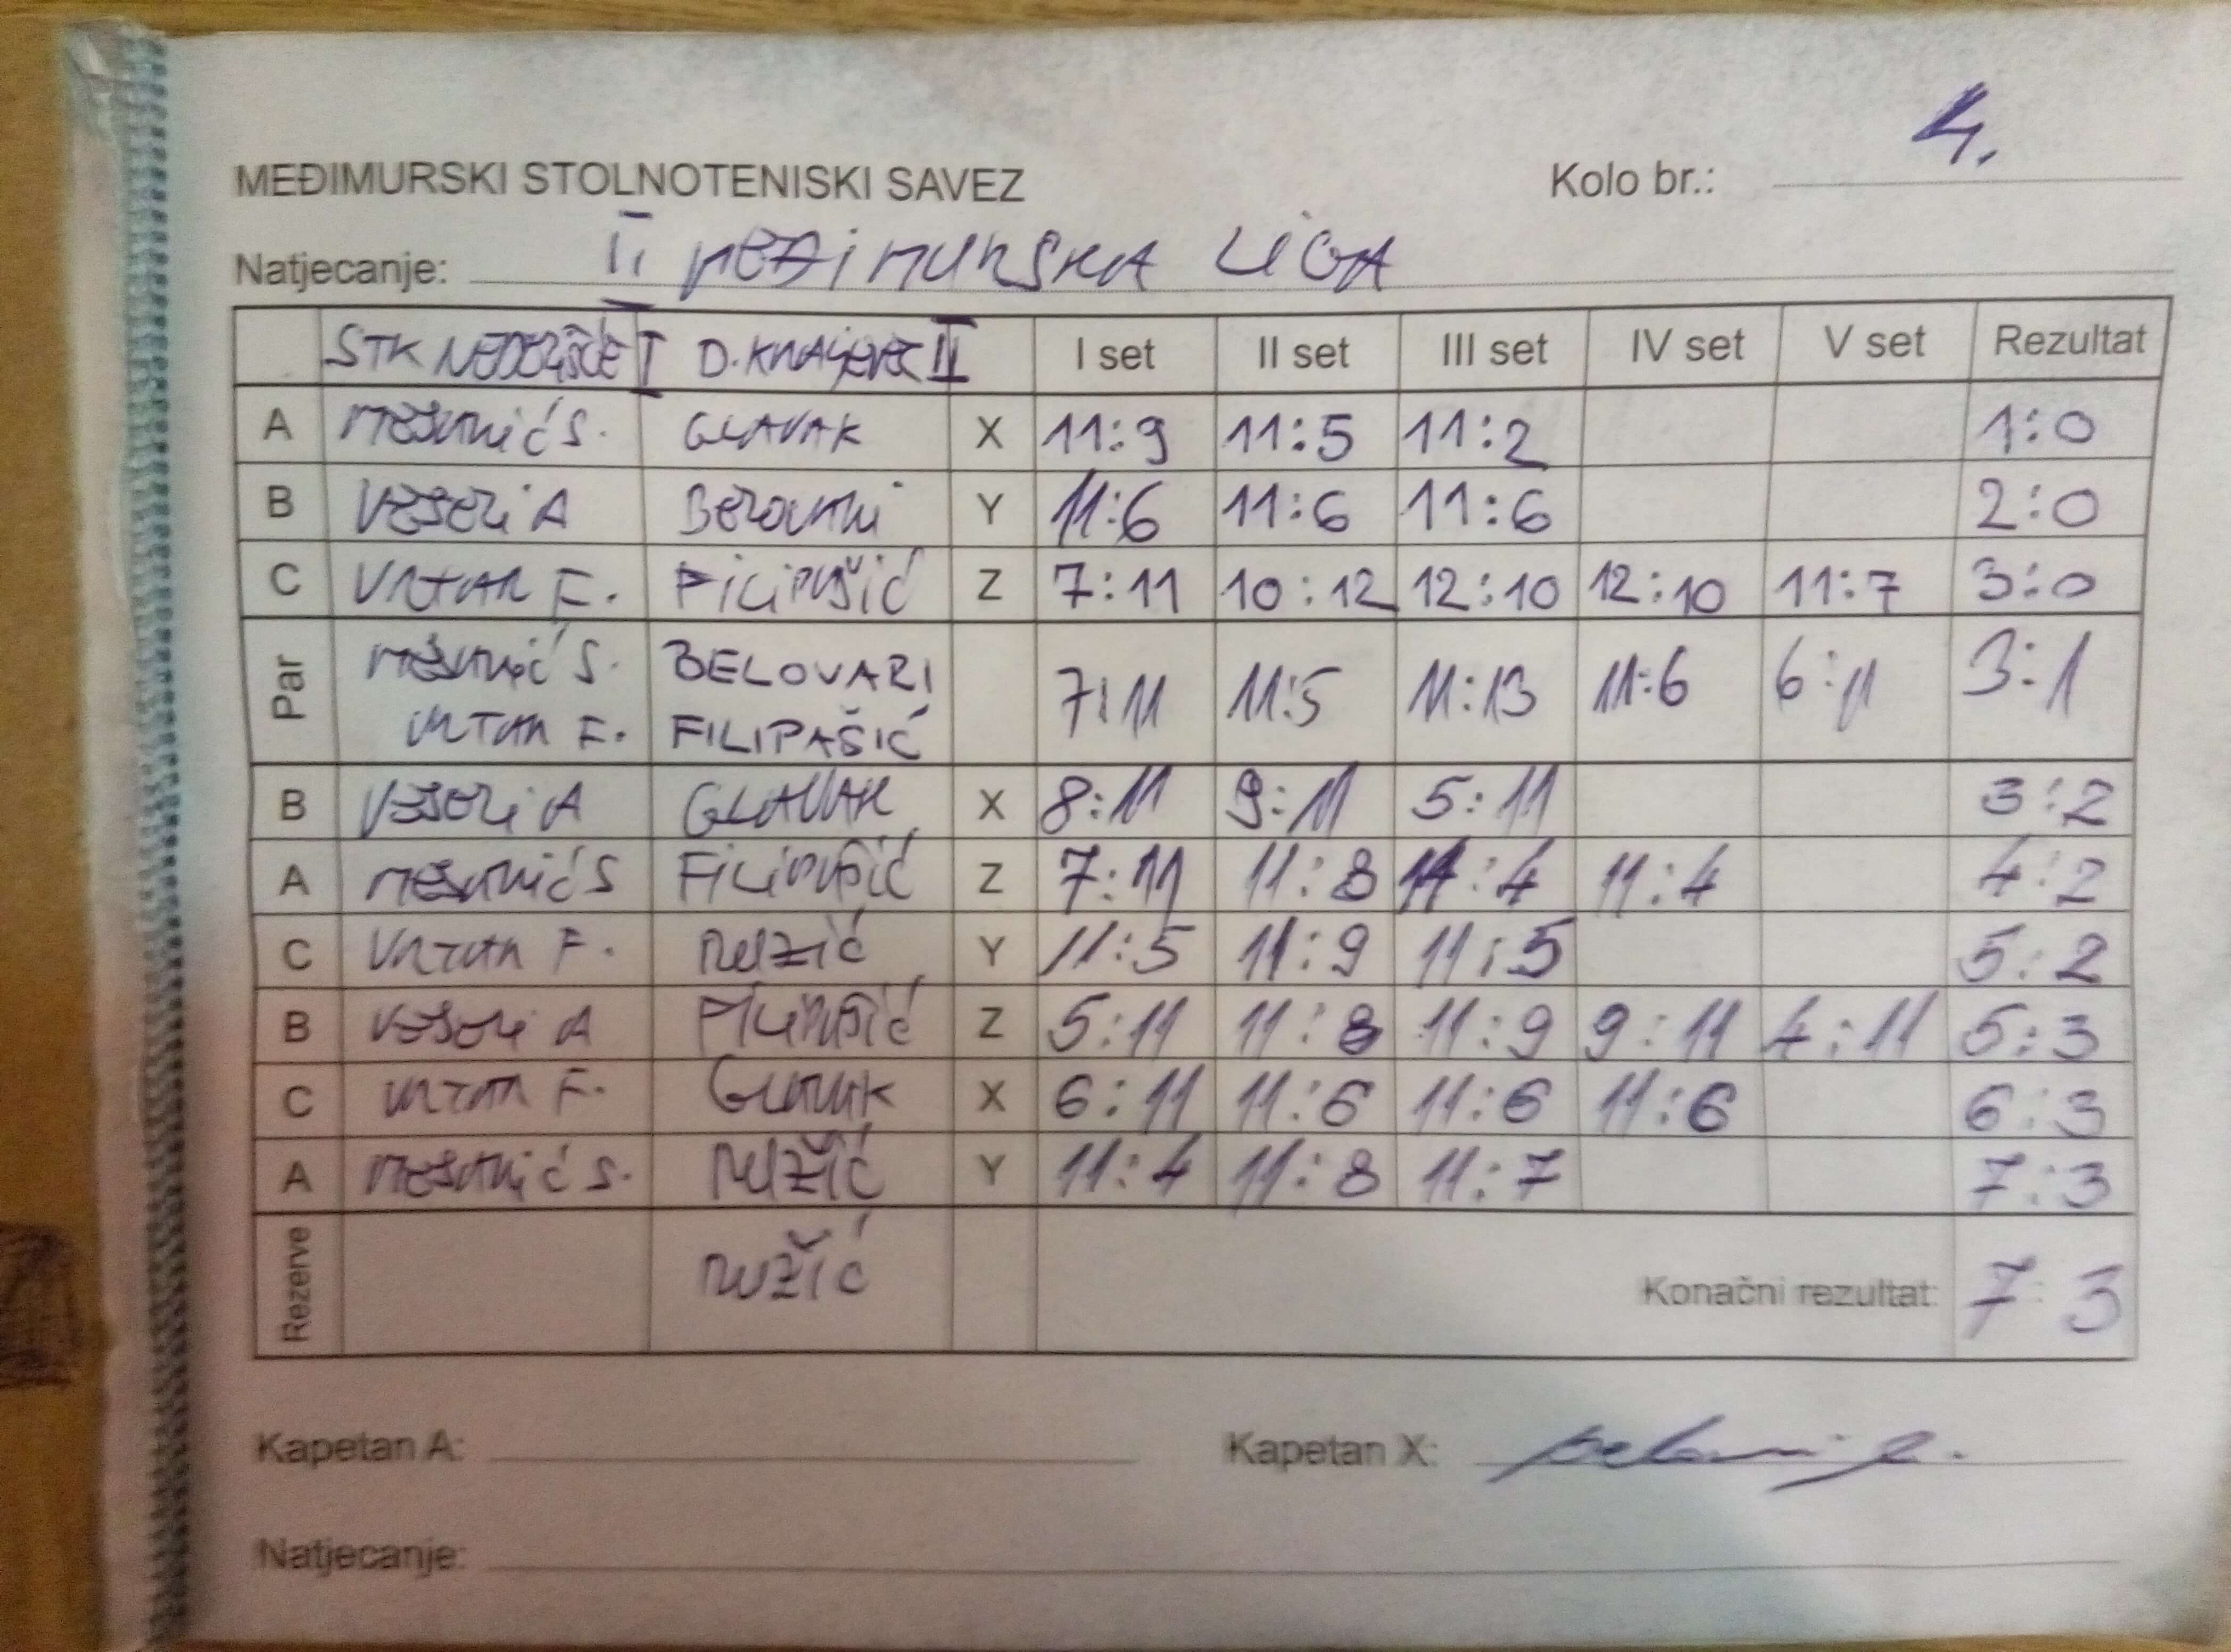 MEĐIMURSKI STOLNOTENISKI SAVEZ Kolo br.: 4.
Natjecanje: II MEĐIMURSKA LIGA
STK NEDELIŠĆE I D.KRALJEVEC II I set II set III set IV set V set Rezultat
A MESARIĆ S. GLAVAK X 11:9 11:5 11:2 1:0
B A BELOVARI Y 11:6 11:6 11:6 2:0
C VRTAR F. FILIPAŠIĆ Z 7:11 10:12 12:10 12:10 11:7 3:0
Par MESARIĆ S. BELOVARI 7:11 11:5 11:13 11:6 6:11 3:1
VRTAR F. FILIPAŠIĆ
B A GLAVAK X 8:11 9:11 5:11 3:2
A MESARIĆ S FILIPAŠIĆ Z 7:11 11:8 11:4 11:4 4:2
C VRTAR F. RUŽIĆ Y 11:5 11:9 11:5 5:2
B A FILIPAŠIĆ Z 5:11 11:8 11:9 9:11 4:11 5:3
C VRTAR F. GLAVAK X 6:11 11:6 11:6 11:6 6:3
A MESARIĆ S. RUŽIĆ Y 11:4 11:8 11:7 7:3
Rezerve RUŽIĆ Konačni rezultat: 7:3
Kapetan A: Kapetan X:
Natjecanje: